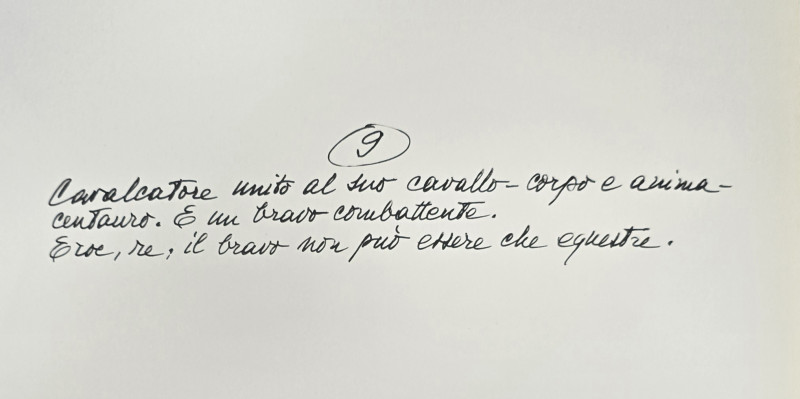 9
Cavalcatore unito al suo cavallo - corpo e anima -
centauro. E un bravo combattente.
Eroe, re; il bravo non può essere che equestre.